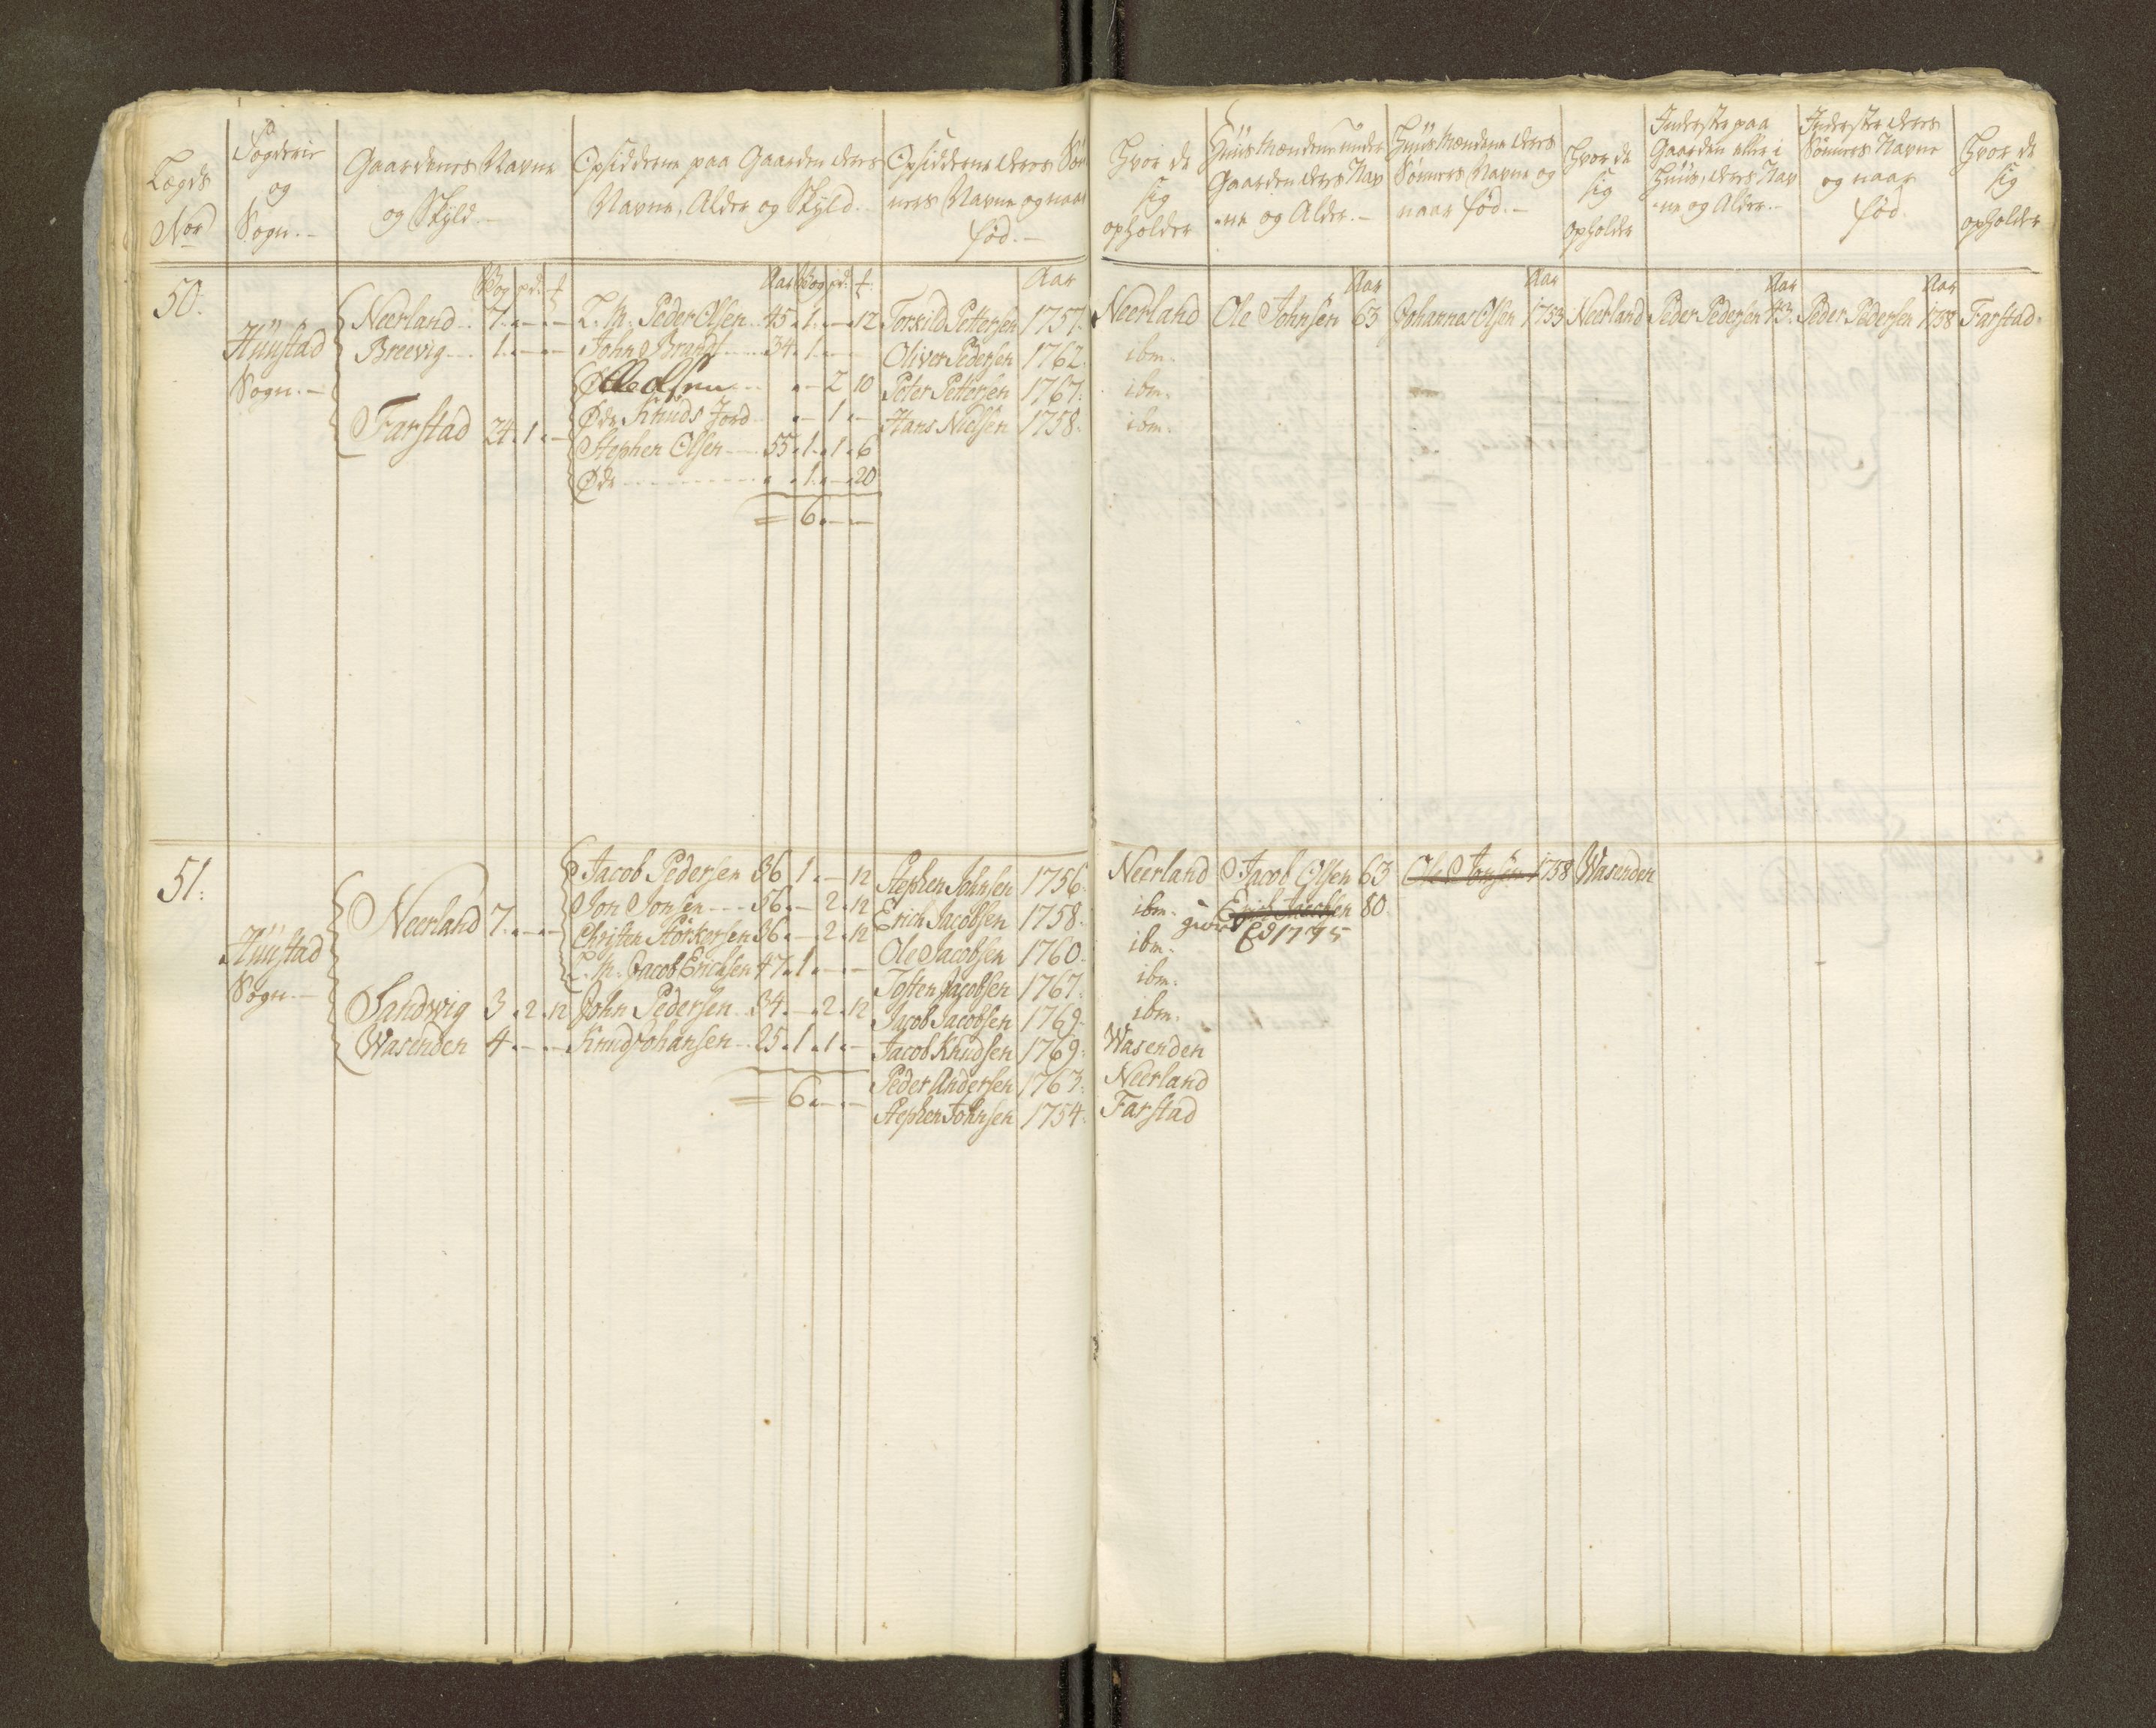 Lægds
No
Fogderie
og
Sogn.-
Gaardenes Navne
og Skyld.-
Opsidderne paa Gaarden deres
Navne, Alder og Skyld.-
Opsidderne deres Søn
ners Navne og naar
fød.-
Hvor de
sig
opholder
Huusmændene under
Gaarden deres Nav
-ne og Alder.-
Huusmændene deres
Sønners Navne og
naar fød.-
Hvor de
sig
opholder
Inderste paa
Gaarden eller i
Huus, deres Nav
-ne og Alder.-
Inderste deres
Sønners Navne
og naar
fød.
Hvor de
sig
opholder
50.
Huustad
Sogn.-
Wog pd. ℔
Neerland 7. - -
Breevig 1. - -
Farstad 24. 1. -
Aar Wog pd. ℔
L. M. Peder Olsen 45. 1. - 12
John Brandt 34. 1. - -
Ole Olsen - 2 10
Øde Knuds Jord - 1. -
Stephen Olsen 55. 1. 1. 6
Øde 1. - 20
= 6. - -
Aar
Torkild Pettersen 1757.
Oliver Pedersen 1762.
Peter Pettersen 1767.
Hans Nielsen 1758.
Neerland
ibm.
ibm.
ibm.
Aar
Ole Johnsen 63
Aar
Johannes Olsen 1753 Neerland
Aar
Peder Pedersen 43.
Aar
Peder Pedersen 1758 Farstad.
51.
Huustad
Sogn.-
Neerland 7. - -
Sandvig 3. 2. 12
Wasenden 4. - -
Jacob Pedersen 36 1. - 12
Jon Jonsen 56. - 2. 12
Christen Störkersen 36. - 2. 12
L. M. Jacob Erichsen 47. 1. - -
John Pedersen 34. - 2. 12
Knud Johansen 25. 1. 1. -
= 6. - -
Stephen Johnsen 1756.
Erich Jacobsen 1758.
Ole Jacobsen 1760.
Tosten Jacobsen 1767.
Jacob Jacobsen 1769.
Jacob Knudsen 1769.
Peder Andersen 1763.
Stephen Johnsen 1754.
Neerland
ibm.
ibm.
ibm.
ibm.
Wasenden
Neerland
Farstad
Jacob Olsen 63
Erich Jacobsen 80.
1795
Ole Jonsen 1758 Wasenden